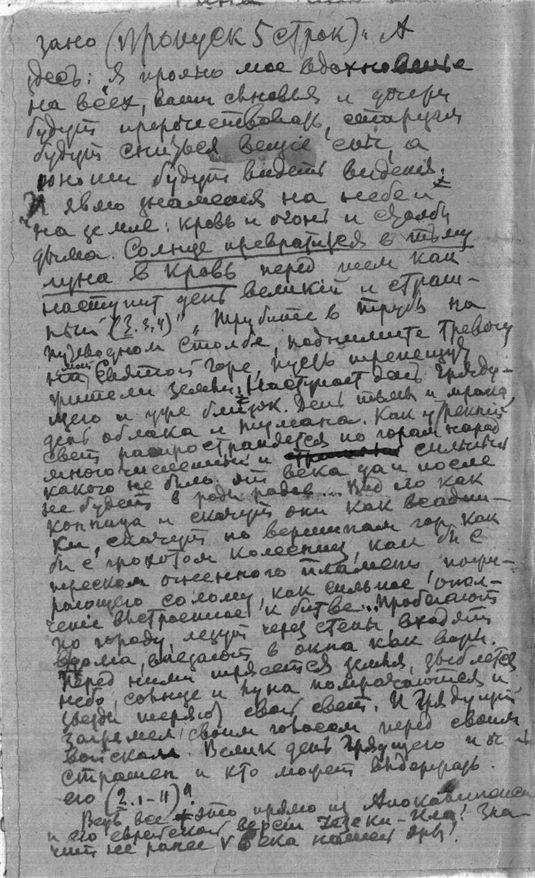 зано (пропуск 5 строк)". А
здесь: "Я пролью мое вдохновенье
на всех, ваши сыновья и дочери
будут пророчествовать, старцам
будут сниться вещие сны, а
юноши будут видеть виденья.
И явлю знаменья на небе и
на земле: кровь и огонь и столбы
дыма. Солнце превратится в тьму
луна в кровь перед тем как
наступит день великий и страш-
ный (2. 3, 4)" "Трубите в трубу на
путеводном столбе, поднимите тревогу
на Святой горе, пусть трепещут
жители земли. Наступает день Гряду-
щего и уже близок. День тьмы и мрака,
день облака и тумана. Как утренний
свет распространяется по горам народ
многочисленный и сильный
какого не было от века да и после
не будет в роды родов... Вид его как
конница и скачут они как всадни-
ки, скачут по вершинам гор как
бы с грохотом колесниц, как бы с
треском огненного пламени пожи-
рающего солому, как сильное опол-
чение выстроенное к битве... Пробегают
по городу, лезут через стены входят
в дома, влезают в окна как воры.
Перед ними трясется земля, зыблется
небо, солнце и луна помрачаются и
звезды теряют свой свет. И Грядущий
загремел своим голосом перед своим
войском. Велик день Грядущего и
страшен и кто может выдержать
его (2. 1-11)"!
Ведь все это прямо из Апокалипсиса
и его еврейской версии
чит не ранее V века нашей эры!